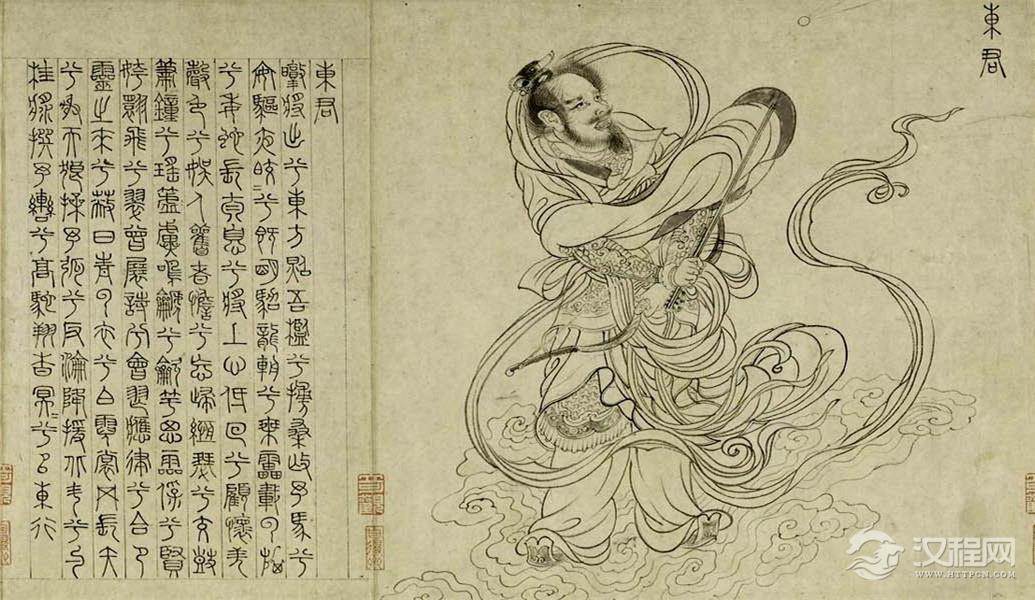 東君
東君
暾將出兮東方照吾檻兮榑桑撫予馬兮
安驅夜皎〻兮既明駕龍輈兮乘靁載雲旗
兮委蛇長太息兮將上心低佪兮顧懷羌
聲色兮娛人觀者憺兮忘歸緪瑟兮交鼓
簫鐘兮瑤簴鳴篪兮龡竽思靈保兮賢
姱翾飛兮翠曾展詩兮會舞應律兮合節
靈之來兮蔽日青雲衣兮白霓裳舉長矢
兮射天狼操予弧兮反淪降援北斗兮酌
桂漿撰予轡兮高駝翔杳冥〻兮以東行
汉程网
WWW.HTTPCN.COM